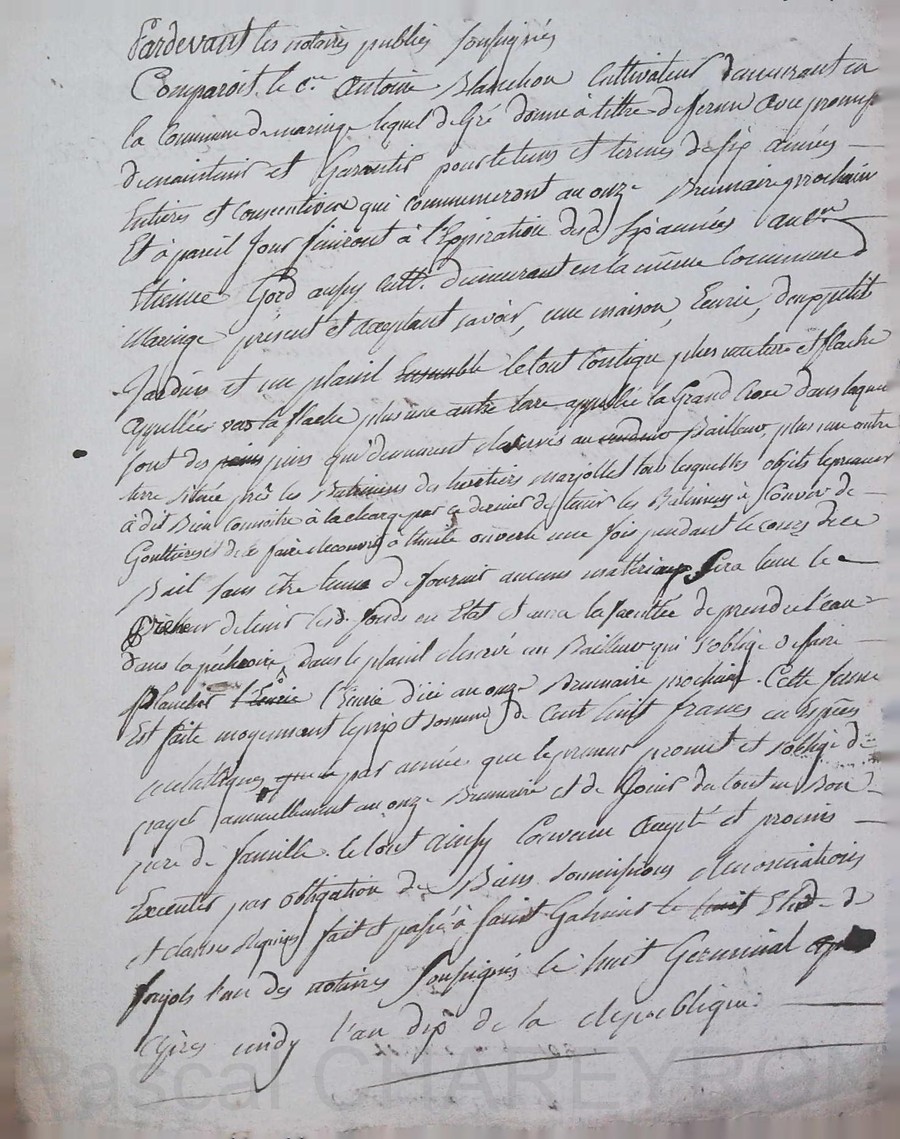 Pardevant les notaires publics soussignés
Comparoit le c.en Antoine Blanchon Cultivateur demeurant en
la Commune de maringe lequel de Gré donne à titre de ferme avec promesse
de maintenir et Garantir pour le tems et termes de six années
Entieres et consecutives qui commenceront au onze Brumaire prochain
Et à pareil Jour finiront à l'Expiration desd. six années au c.en
Etienne Gord aussy cult.r demeurant en la même Commune d
Maringe present et acceptant savoir, une maison, Ecurie, deux petit
Jardins et un plassil Ensemble le tout Contigue plus une terre et flache
appellées la flache plus une autre terre appellée la Grand Croix dans laquelle
sont des pins qui demeurent reservés au Bailleur, plus une autre
terre située près les Batimens des heritiers marjollet tous lesquelles objets le preneur
à dit Bien connoitre à la charge par ce dernier de tenir les Batimens à Couvert de
Gouttieres et de faire recouvrir à thuile ouverte une fois pendant le cours de ce
Bail sans être tenu de fournir aucuns matériaux sera tenu le
preneur de tenir lesd. fonds en Etat et aura la faculté de prendre l'eau
dans la pêcherie, dans le plassil reservé au Bailleur qui s'oblige de faire
plancher l'Ecurie l'Ecurie d'ici au onze Brumaire prochain. Cette ferme
Est faite moyennant le prix et somme de Cent huit francs en espèces
metalliques par année que le preneur promet et s'oblige de
payer annuellement au onze Brumaire et de Jouir du tout en Bon
pere de famille. le tout ainsy Convenu accepté et promis
Executer par obligation de Biens soumissions renonciations
et clauses requises fait et passé à saint Galmier le huit Etude de
l'un des notaires soussignés le huit Germinal
après midy l'an dix de la republique.
Pascal CHAREYRON